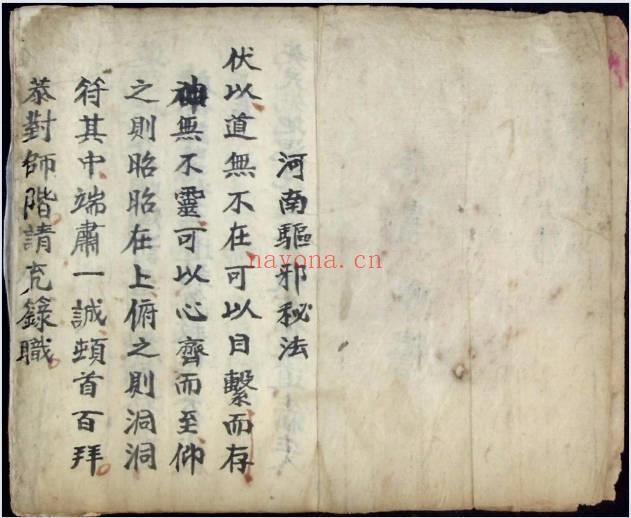 河南驅邪秘法
伏以道無不在可以目繫而存
神無不靈可以心齊而至仰
之則昭昭在上俯之則洞洞
符其中端肅一誠頓首百拜
恭對師階請充籙職
nayona.cn